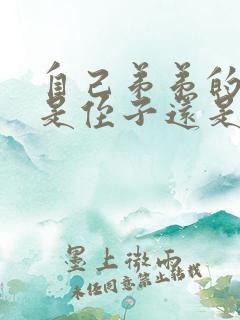 自己弟弟的
是侄子還是
墨上微雨
未经同意禁止转载